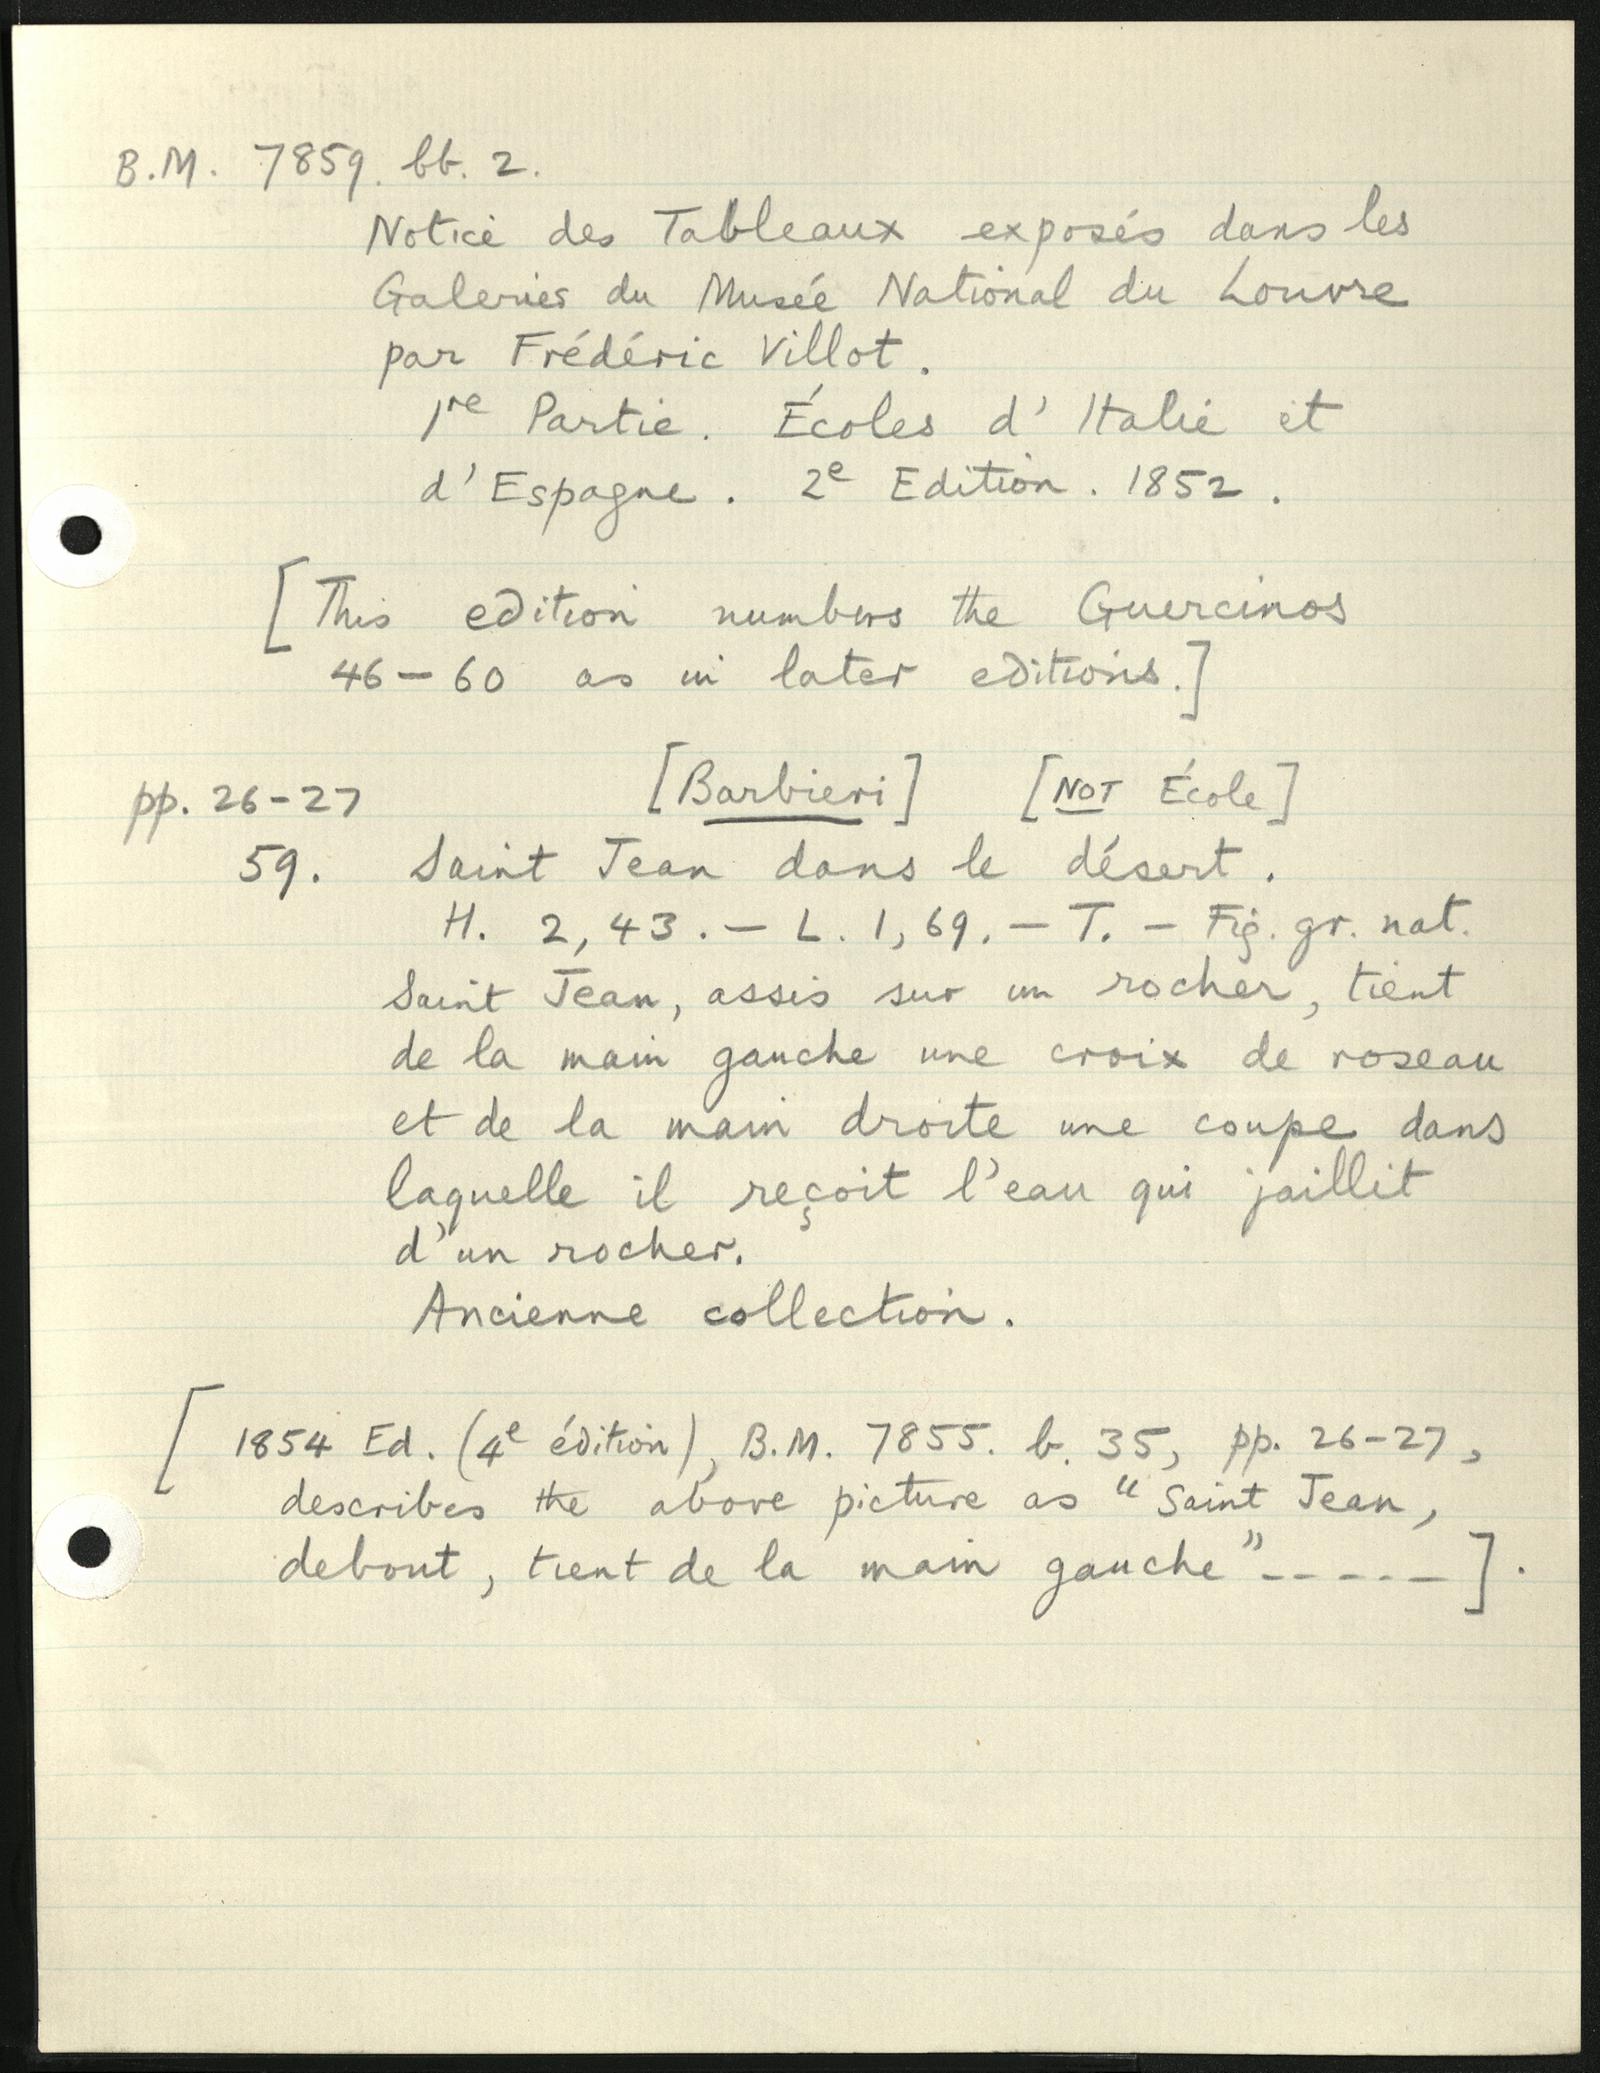 B.M. 7859. bb. 2.
Notice des Tableaux exposés dans les
Galeries du Musée National du Louvre
par Frédéric Villot.
1re Partie. Écoles d'Italie et
d'Espagne. 2e Edition. 1852.
[This edition numbers the Guercinos
46-60 as in later editions.]
pp. 26-27 [Barbieri] [NOT École]
59. Saint Jean dans le désert.
H. 2,43. — L. 1,69. — T. — Fig. gr. nat.
Saint Jean, assis sur un rocher, tient
de la main gauche une croix de roseau
et de la main droite une coupe dans
laquelle il reçoit l'eau qui jaillit
d'un rocher.
Ancienne collection.
[1854 Ed. (4e édition), B.M. 7855. b. 35, pp. 26-27,
describes the above picture as "Saint Jean,
debout, tient de la main gauche" ------].